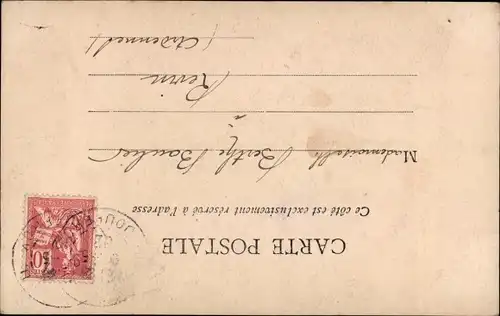 CARTE POSTALE
Ce côté est exclusivement réservé à l'adresse
Mademoiselle Berthe Boucher
à
Revin
(Ardennes)
10